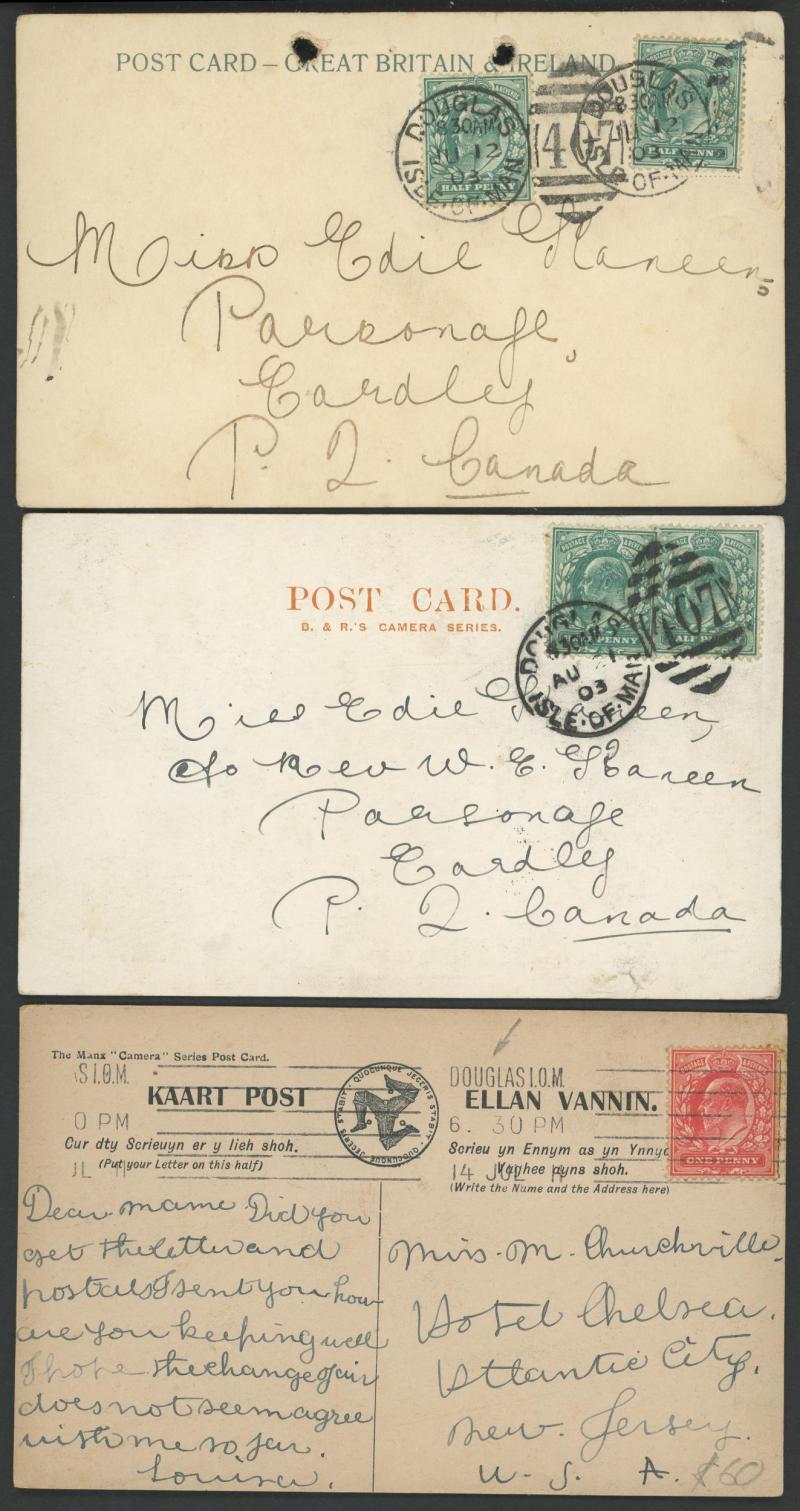 POST CARD – GREAT BRITAIN & IRELAND
DOUGLAS
8 30AM
JU 12
03
ISLE·OF·MAN
HALF PENNY
407
DOUGLAS
8 30AM
JU 12
03
ISLE·OF·MAN
HALF PENNY
Miss Edie Kaneen,
Parsonage,
Eardley
P. Q. Canada
POST CARD.
B. & R.'S CAMERA SERIES.
POSTAGE & REVENUE
POSTAGE & REVENUE
DOUGLAS
AU
03
ISLE·OF·MAN
PENNY
407
HALF PENNY
Miss Edie Kaneen,
c/o Rev W. E. Kaneen
Parsonage
Eardley
P. Q. Canada
The Manx "Camera" Series Post Card.
S I.O.M.
0 PM
UL 11
KAART POST
QUOCUNQUE JECERIS STABIT · QUOCUNQUE JECERIS STABIT
DOUGLAS I.O.M.
ELLAN VANNIN.
6. 30 PM
14 JUL 11
ONE PENNY
Cur dty Scrieuyn er y lieh shoh.
(Put your Letter on this half)
Scrieu yn Ennym as yn Ynnyd
Vaghee ayns shoh.
(Write the Name and the Address here)
Dear mame Did you
get the letter and
postals I sent you how
are you keeping well
I hope the change of air
does not seem agree
with me so far.
Louisa.
Miss. M. Churchville.
Hotel Chelsea.
Atlantic City.
New. Jersey.
U. S. A.
$60